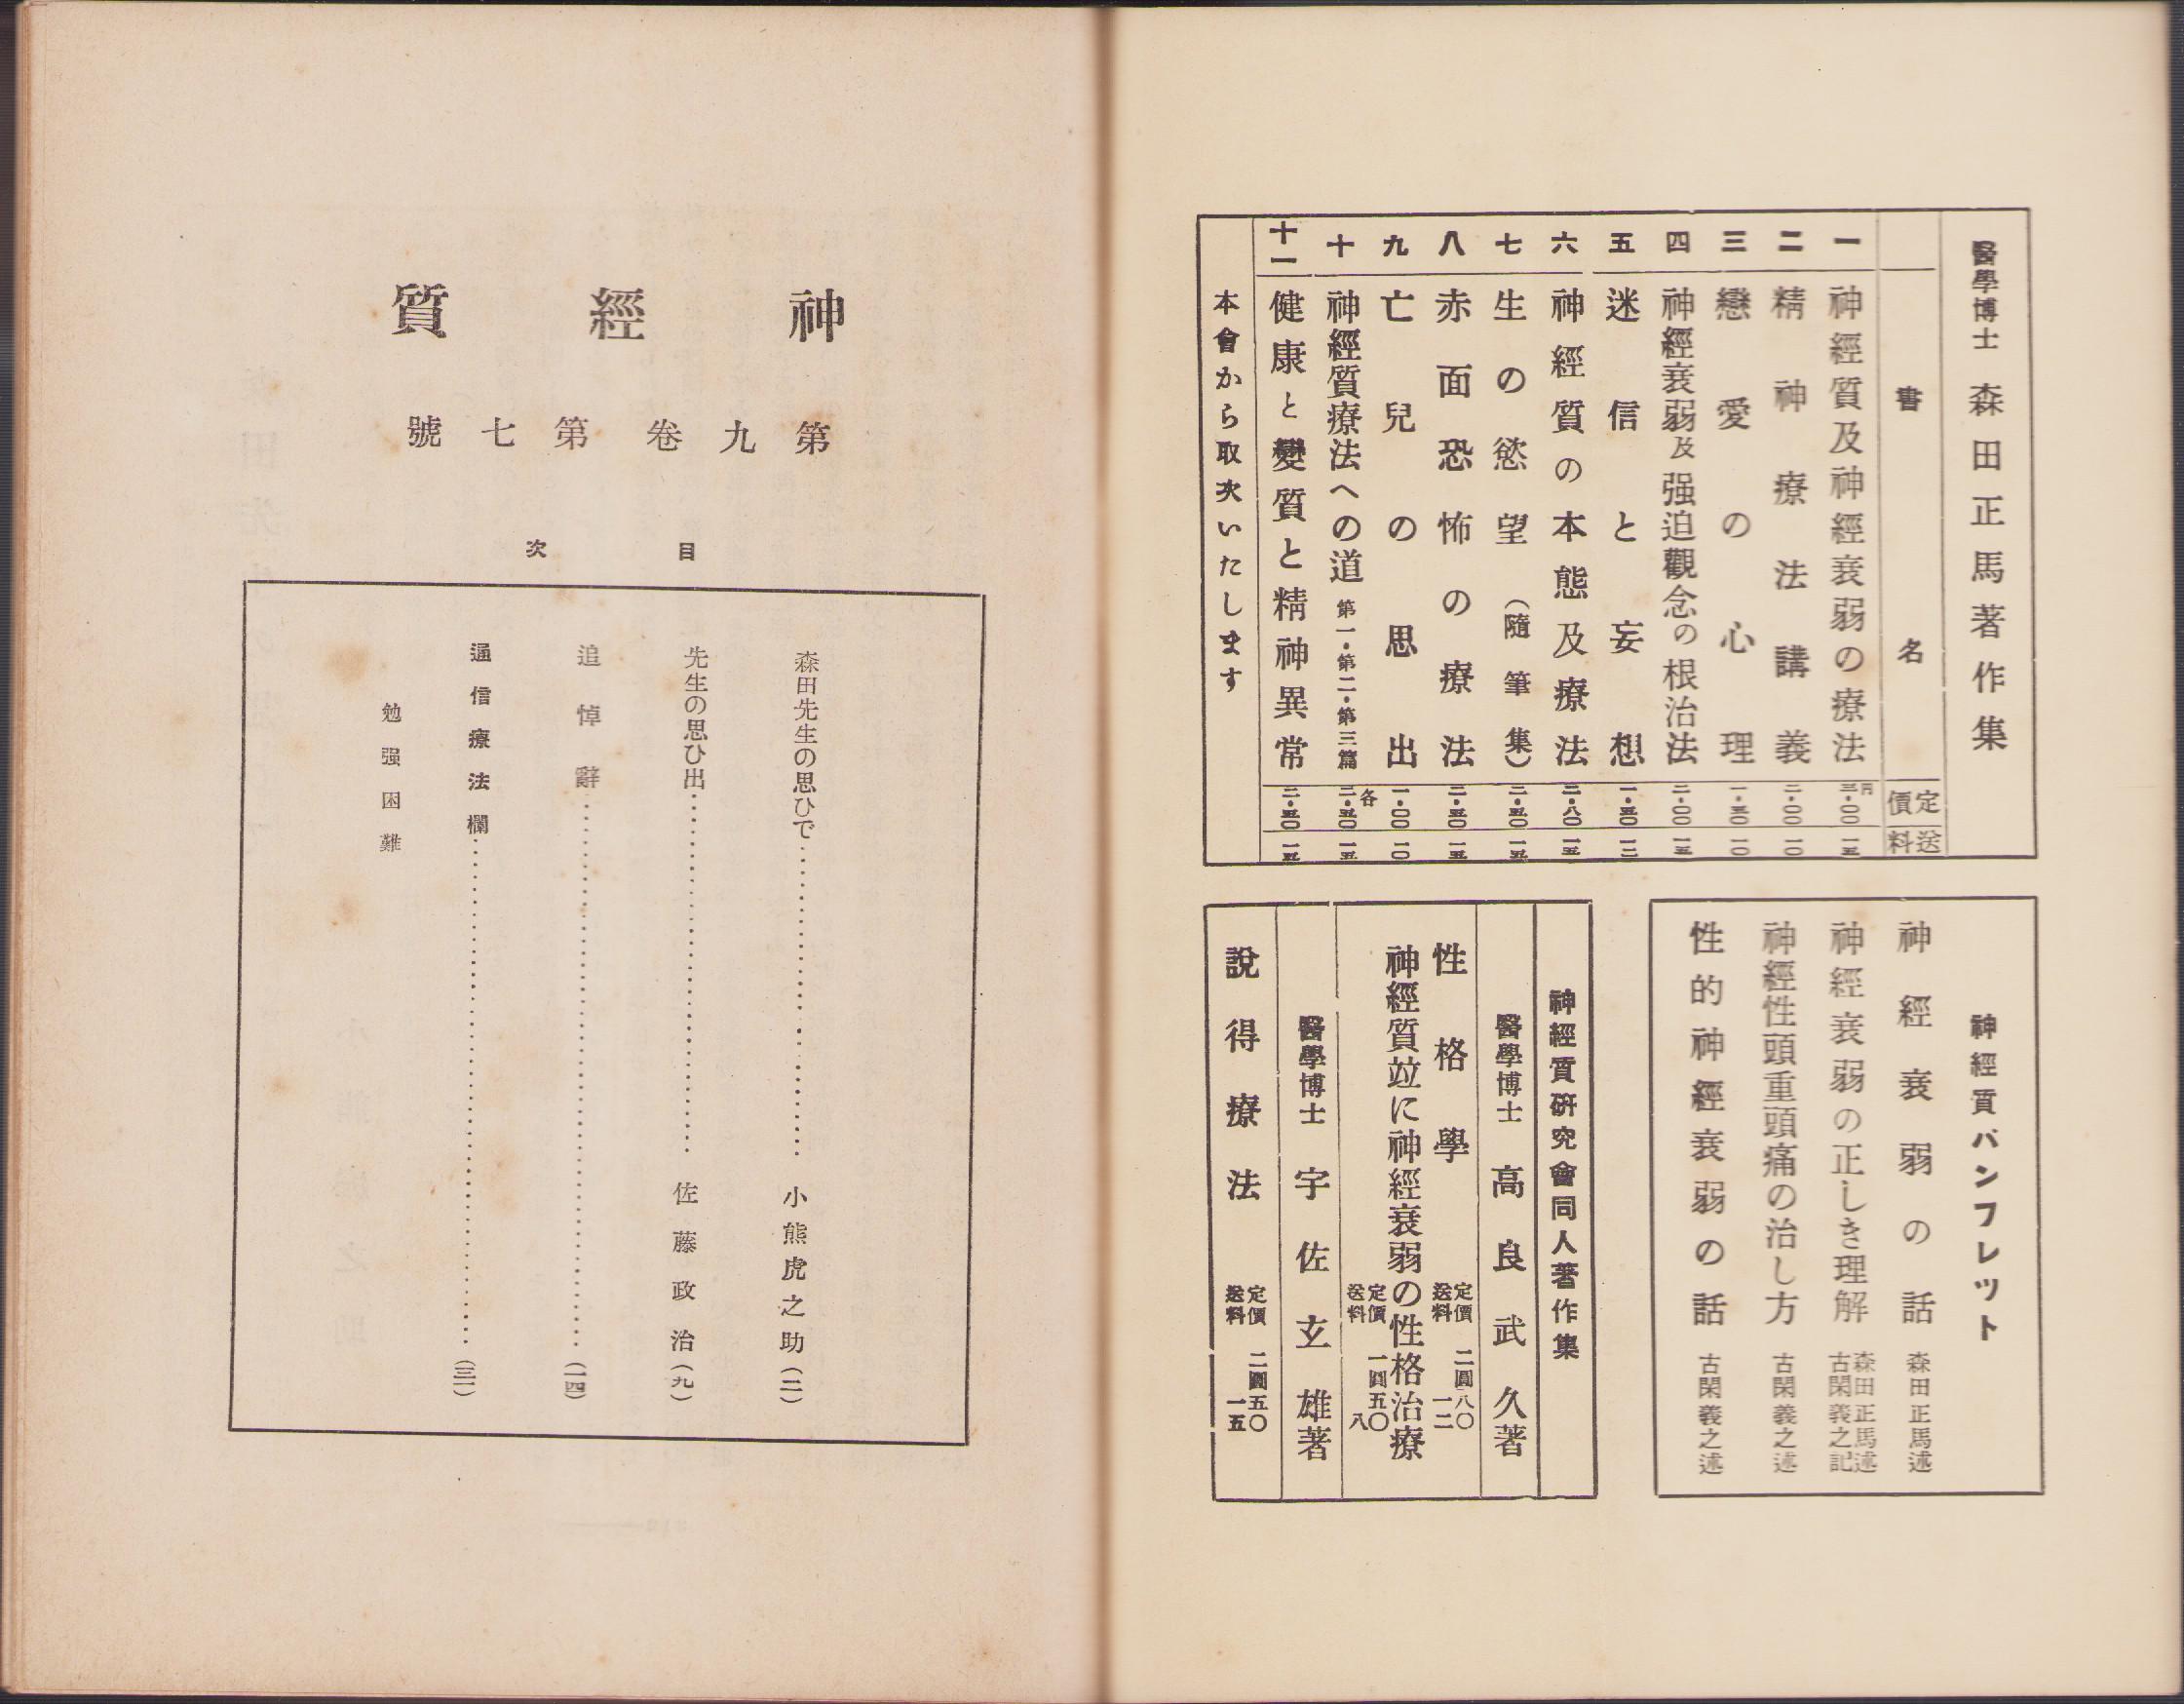 醫學博士 森田正馬著作集
書名 定價 送料
一 神經質及神經衰弱の療法 三・〇〇円 一五
二 精神療法講義 二・〇〇 一〇
三 戀愛の心理 一・五〇 一〇
四 神經衰弱及强迫觀念の根治法 二・〇〇 一五
五 迷信と妄想 一・五〇 一二
六 神經質の本態及療法 二・八〇 一五
七 生の慾望(隨筆集) 二・五〇 一五
八 赤面恐怖の療法 二・五〇 一五
九 亡兒の思出 一・〇〇 一〇
十 神經質療法への道 第一・第二・第三篇 各二・五〇 一五
十一 健康と變質と精神異常 二・五〇 一五
本會から取次いたします
神經質パンフレット
神經衰弱の話 森田正馬述
神經衰弱の正しき理解 森田正馬述 古閑義之記
神經性頭重頭痛の治し方 古閑義之述
性的神經衰弱の話 古閑義之述
神經質硏究會同人著作集
醫學博士 高良武久著
性格學 定價 二圓八〇 送料 一二
神經質竝に神經衰弱の性格治療 定價 一圓五〇 送料 八
醫學博士 宇佐玄雄著
說得療法 定價 二圓五〇 送料 一五
神經質
第九卷第七號
目次
森田先生の思ひで……… 小熊虎之助(二)
先生の思ひ出……… 佐藤政治(九)
追悼辭………(一四)
通信療法欄………(三一)
勉强困難